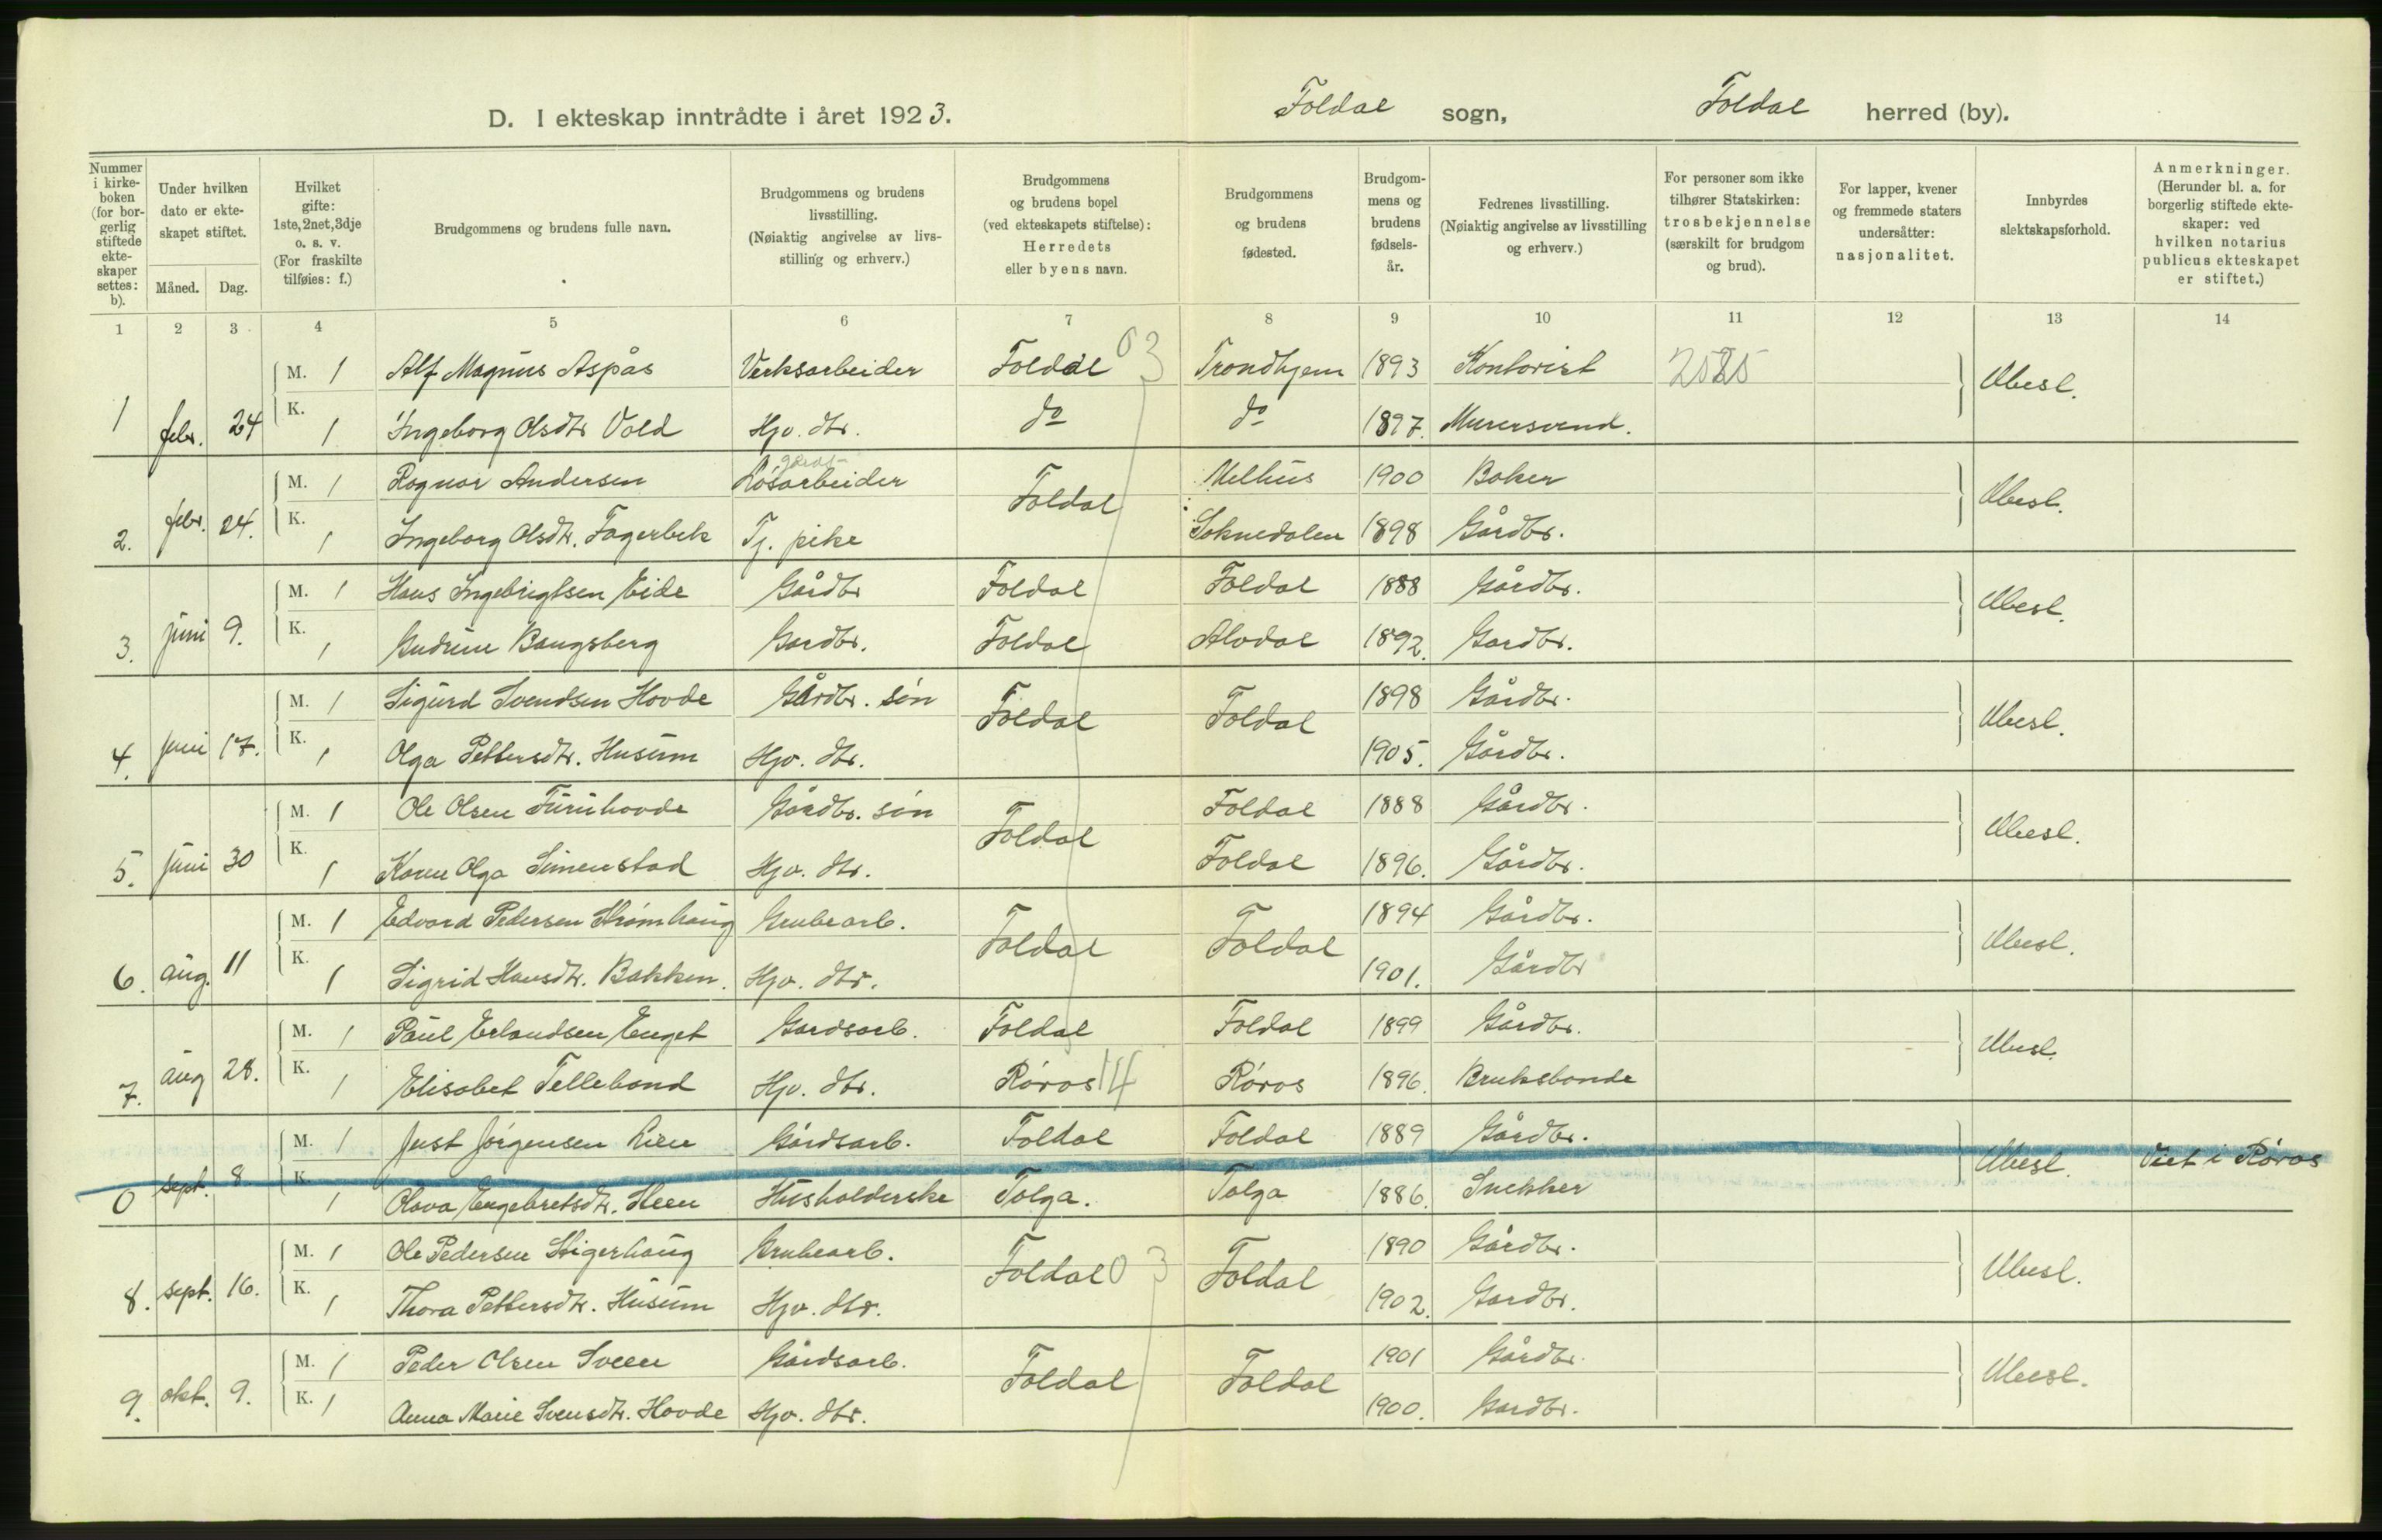 D. I ekteskap inntrådte i året 1923. Foldal sogn, Foldal herred (by).
Nummer i kirkeboken (for borgerlig stiftede ekteskaper settes: b).
Under hvilken dato er ekteskapet stiftet.
Måned. Dag.
Hvilket gifte: 1ste, 2net, 3dje o. s. v. (For fraskilte tilføies: f.)
Brudgommens og brudens fulle navn.
Brudgommens og brudens livsstilling. (Nøiaktig angivelse av livsstilling og erhverv.)
Brudgommens og brudens bopel (ved ekteskapets stiftelse): Herredets eller byens navn.
Brudgommens og brudens fødested.
Brudgommens og brudens fødselsår.
Fedrenes livsstilling. (Nøiaktig angivelse av livsstilling og erhverv.)
For personer som ikke tilhører Statskirken: trosbekjennelse (særskilt for brudgom og brud).
For lapper, kvener og fremmede staters undersåtter: nasjonalitet.
Innbyrdes slektskapsforhold.
Anmerkninger. (Herunder bl. a. for borgerlig stiftede ekteskaper: ved hvilken notarius publicus ekteskapet er stiftet.)
1 2 3 4 5 6 7 8 9 10 11 12 13 14
M. 1 Alf Magnus Aspås Verksarbeider Foldal 03 Trondhjem 1893 Kontorist 2585 Ubesl.
1 febr. 24 K. 1 Ingeborg Olsdtr Vold Hjv. dtr. do do 1897. Murersvend.
M. 1 Ragnar Andersen Løsarbeider Foldal Melhus 1900 Baker Ubesl.
2. febr. 24. K. 1 Ingeborg Olsdtr. Fagerbek Tj. pike Soknedalen 1898 Gårdbr.
M. 1 Hans Ingebrigtsen Eide Gårdbr Foldal Foldal 1888 Gårdbr. Ubesl.
3. juni 9. K. 1 Gudrun Bangsberg Gardbr. Foldal Alvdal 1892. Gardbr.
M. 1 Sigurd Svendsen Hovde Gårdbr. søn Foldal Foldal 1898 Gårdbr. Ubesl.
4. juni 17. K. 1 Olga Pettersdtr. Husum Hjv. dtr. 1905. Gårdbr.
M. 1 Ole Olsen Furuhovde Gårdbr. søn Foldal Foldal 1888 Gårdbr. Ubesl.
5. juni 30 K. 1 Karen Olga Simenstad Hjv. dtr. Foldal 1896. Gårdbr.
M. 1 Edvard Pedersen Strømhaug Grubearb. Foldal Foldal 1894 Gårdbr. Ubesl.
6. aug. 11 K. 1 Sigrid Hansdtr. Bakken. Hjv. dtr. 1901. Gårdbr
M. 1 Paul Erlandsen Enget Gardsarb. Foldal Foldal 1899 Gårdbr. Ubesl.
7. aug 28. K. 1 Elisabet Tellebond Hjv. dtr. Røros 14 Røros 1896. Bruksbonde
M. 1 Just Jørgensen Lien Gårdsarb. Foldal Foldal 1889 Gårdbr. Ubesl. Viet i Røros
0 sept. 8 K. 1 Olava Engebretsdtr. Steen Husholderske Tolga. Tolga 1886. Snekker
M. 1 Ole Pedersen Stigerhaug Grubearb. Foldal 03 Foldal 1890 Gårdbr. Ubesl.
8. sept. 16. K. 1 Thora Pettersdtr. Husum Hjv. dtr. 1902. Gardbr.
M. 1 Peder Olsen Sveen Gårdsarb. Foldal Foldal 1901 Gårdbr. Ubesl.
9. okt. 9. K. 1 Anna Marie Svensdtr. Hovde Hjv. dtr. 1900. Gardbr.